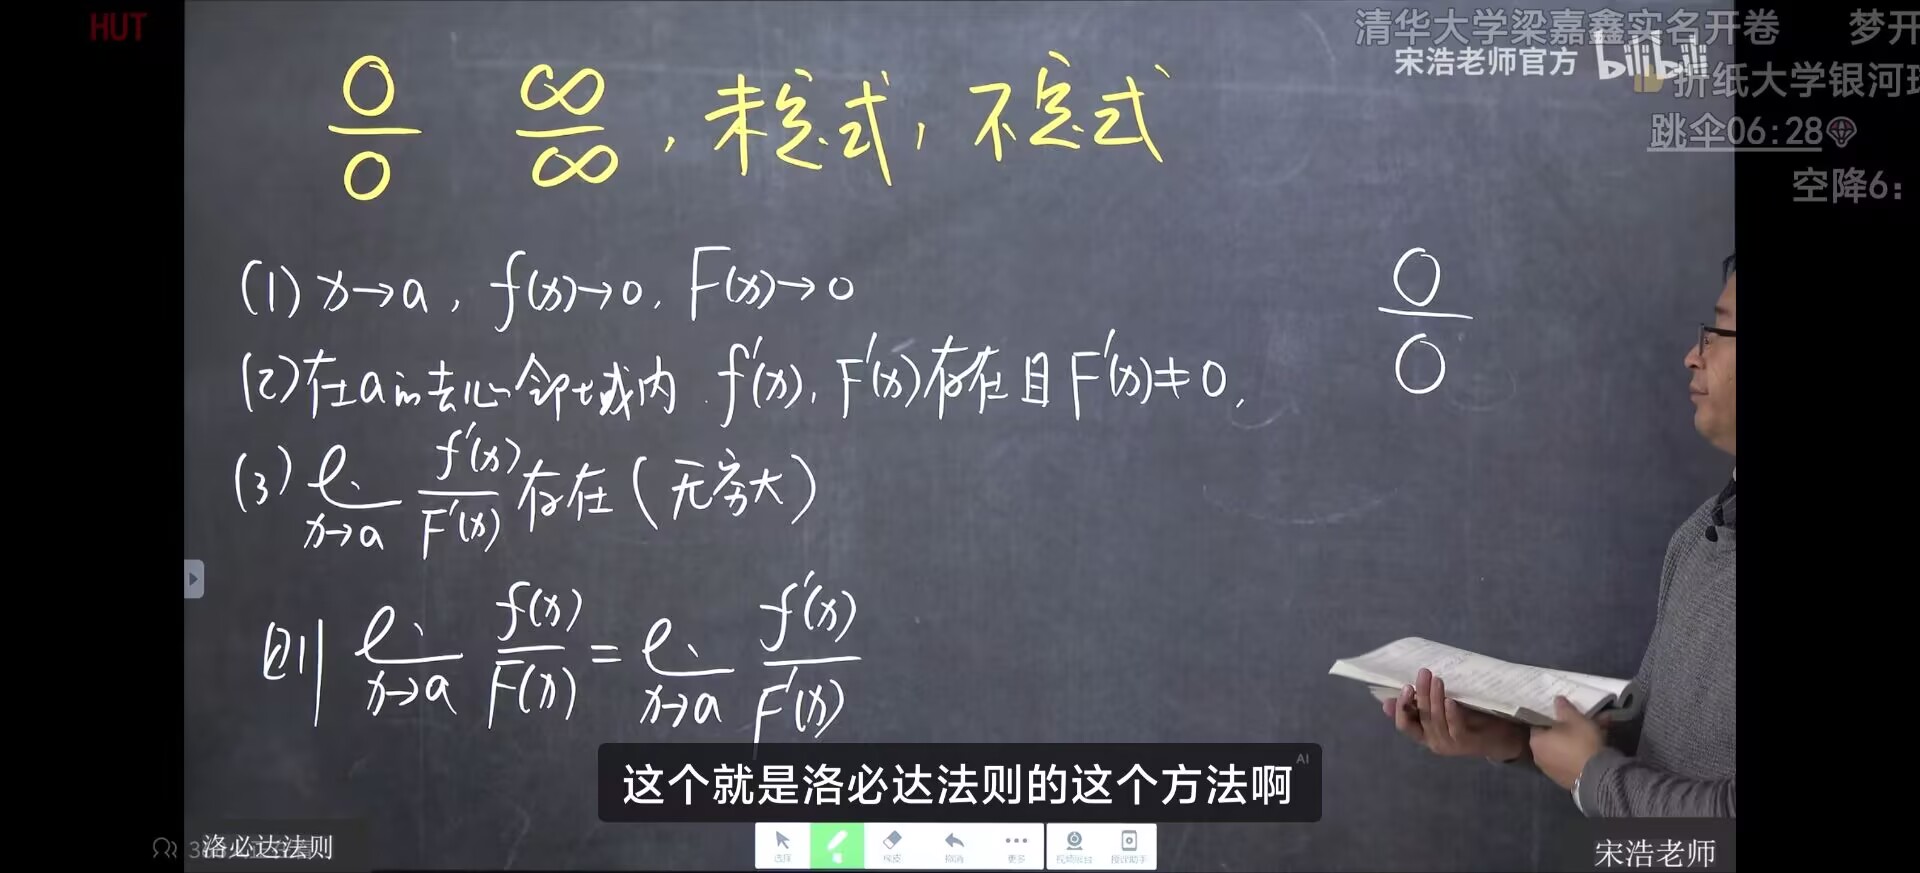 HUT
清华大学梁嘉鑫实名开卷 梦开
宋浩老师官方 bilibili
折纸大学银河
跳伞06:28
空降6:
0/0 ∞/∞, 未定式, 不定式
(1) x→a, f(x)→0, F(x)→0
0/0
(2) 在a的去心邻域内 f'(x), F'(x)存在且F'(x)≠0,
(3) lim x→a f'(x)/F'(x) 存在(无穷大)
则 lim x→a f(x)/F(x) = lim x→a f'(x)/F'(x)
这个就是洛必达法则的这个方法啊
AI
洛必达法则
选择 笔 橡皮 撤消 更多 视频展台 授课助手
宋浩老师